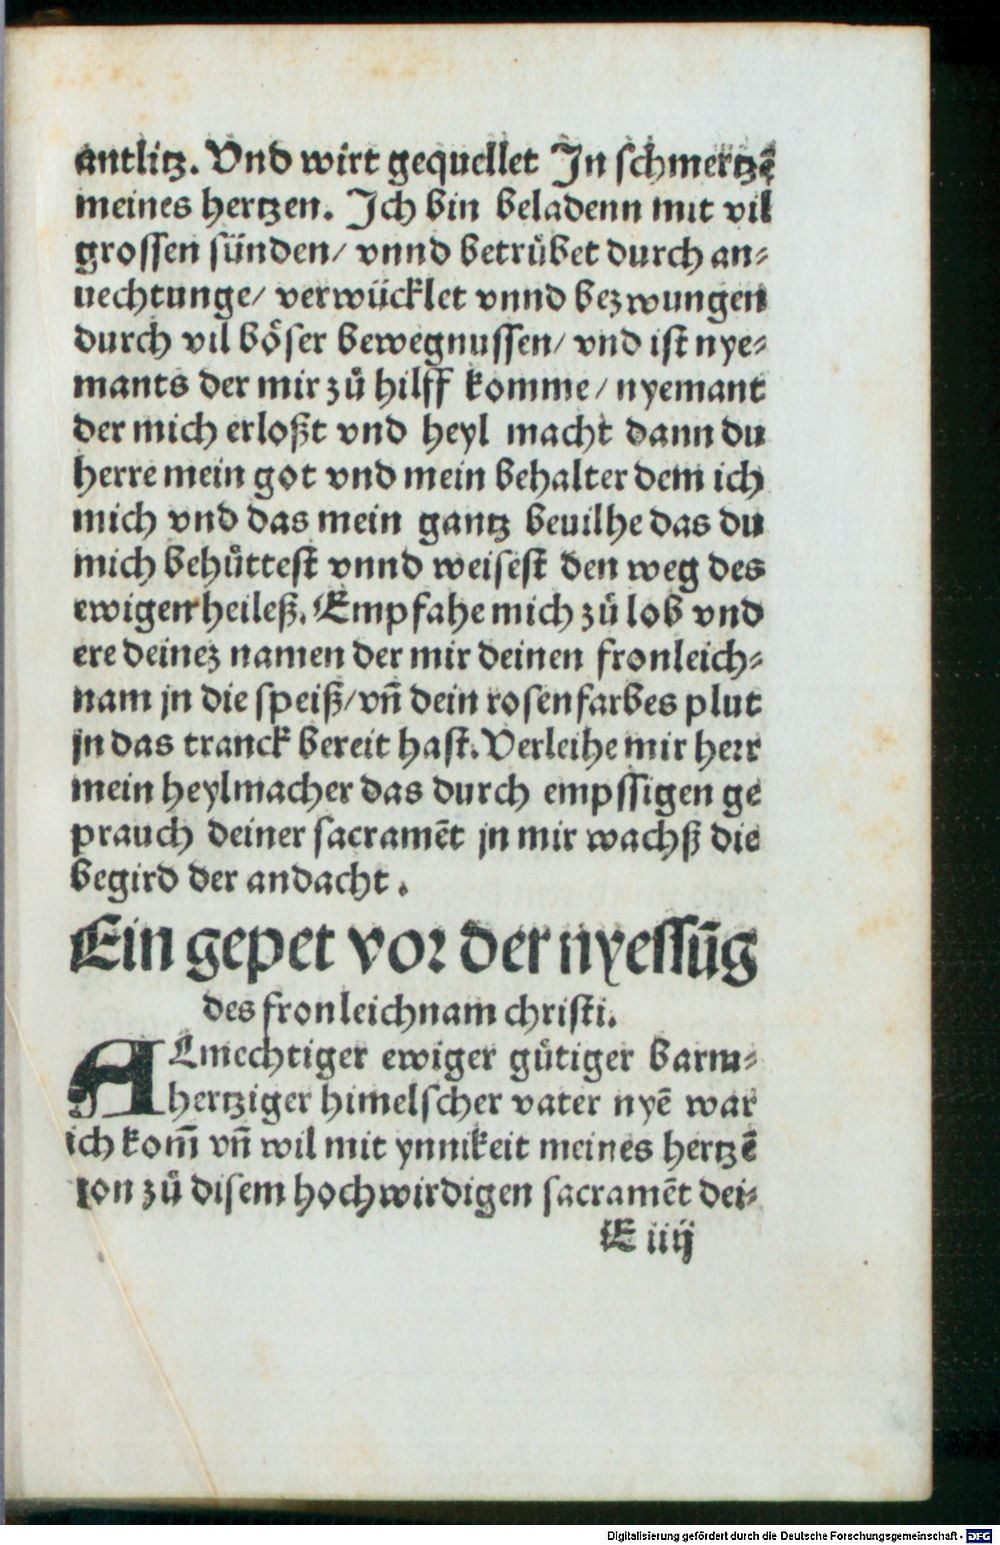 antlitz. Vnd wirt gequellet Jn schmertzē
meines hertzen. Jch bin beladenn mit vil
grossen sünden/ vnnd betrůbet durch an⸗
uechtunge/ verwücklet vnnd bezwungen
durch vil böser bewegnussen/ vnd ist nye⸗
mants der mir zů hilff komme/ nyemant
der mich erloßt vnd heyl macht dann du
herre mein got vnd mein behalter dem ich
mich vnd das mein gantz beuilhe das du
mich behůttest vnnd weisest den weg des
ewigen heileß. Empfahe mich zů lob vnd
ere deinez namen der mir deinen fronleich⸗
nam jn die speiß/ vn̄ dein rosenfarbes plut
jn das tranck bereit hast. Verleihe mir herr
mein heylmacher das durch empssigen ge
prauch deiner sacramēt jn mir wachß die
begird der andacht.
Ein gepet vor der nyessūg
des fronleichnam christi.
ALmechtiger ewiger gůtiger barm⸗
hertziger himelscher vater nyē war
ich kom̄ vn̄ wil mit ynnikeit meines hertzē
ton zů disem hochwirdigen sacramēt dei⸗
E iiij
Digitalisierung gefördert durch die Deutsche Forschungsgemeinschaft - DFG